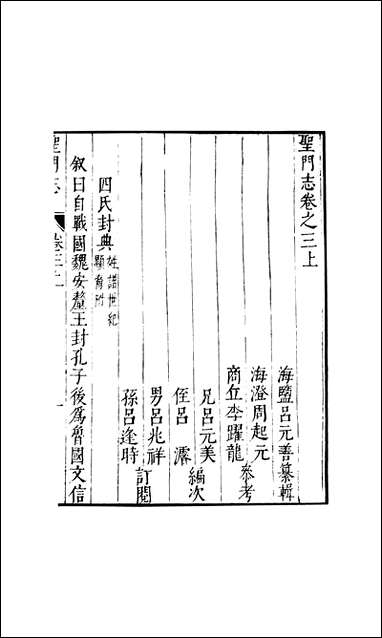 聖門志卷之三上
海鹽呂元善纂輯
海澄周起元
商丘李躍龍
叅考
兄呂元美
侄呂濬
編次
男呂兆祥
孫呂逢時
訂閱
四氏封典
姓譜世紀
顯育附
叙曰自戰國魏安釐王封孔子後爲魯國文信
聖門志
卷三上
一